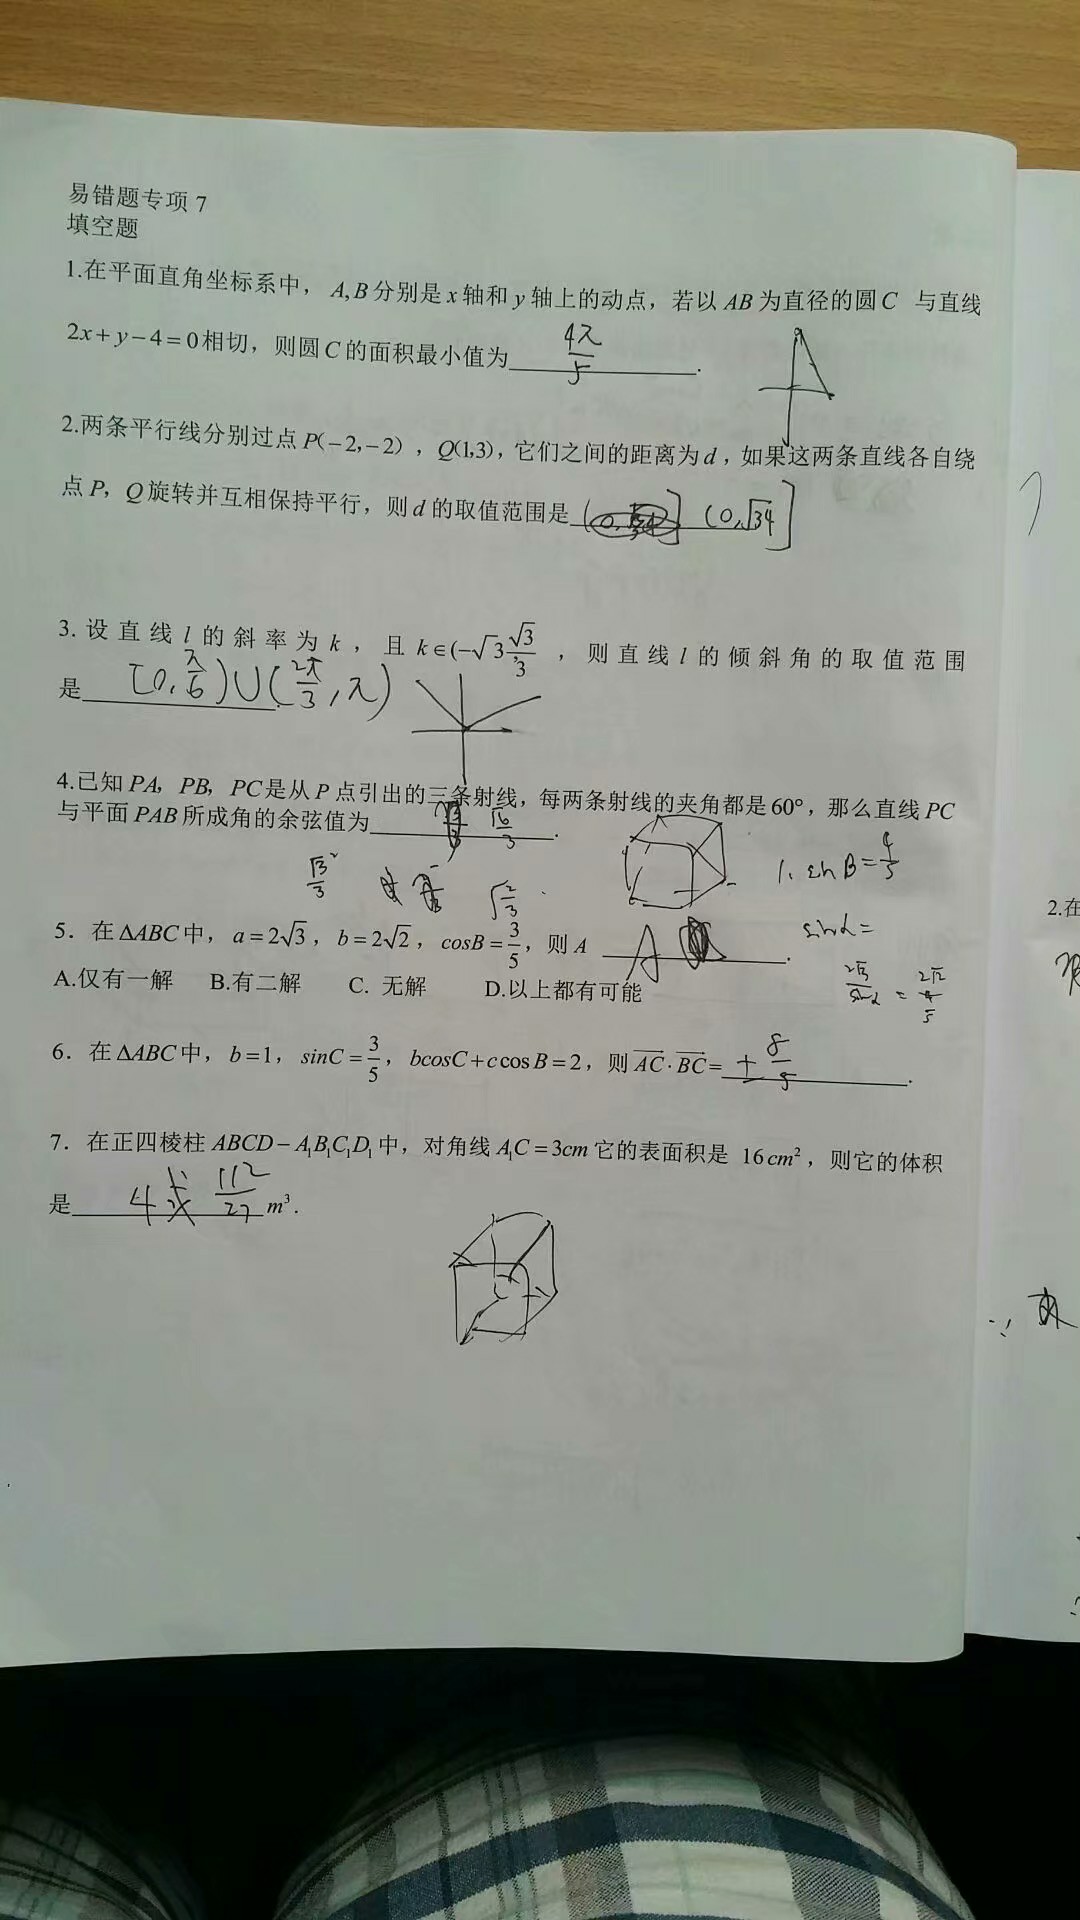 易错题专项 7
填空题
1.在平面直角坐标系中，A,B分别是x轴和y轴上的动点，若以AB为直径的圆C 与直线
2x+y−4=0相切，则圆C的面积最小值为 4π/5 .
2.两条平行线分别过点P(−2,−2)，Q(1,3)，它们之间的距离为d，如果这两条直线各自绕
点P，Q旋转并互相保持平行，则d的取值范围是 (0,√34]
3. 设直线l的斜率为k，且k∈(−√3,√3/3，则直线l的倾斜角的取值范围
是 [0,π/6)∪(2π/3,π)
4.已知PA，PB，PC是从P点引出的三条射线，每两条射线的夹角都是60°，那么直线PC
与平面PAB所成角的余弦值为 √6/3 .
√3/3 2 √2/3
1. sinB=4/5
5．在ΔABC中，a=2√3，b=2√2，cosB=3/5，则A A .
sinα=
A.仅有一解 B.有二解 C. 无解 D.以上都有可能
2√3/sinα = 2√2/(4/5)
6．在ΔABC中，b=1，sinC=3/5，bcosC+ccosB=2，则AC·BC= + 8/5 .
7．在正四棱柱ABCD−A₁B₁C₁D₁中，对角线A₁C=3cm它的表面积是 16cm²，则它的体积
是 4或 112/27 m³.
2.在